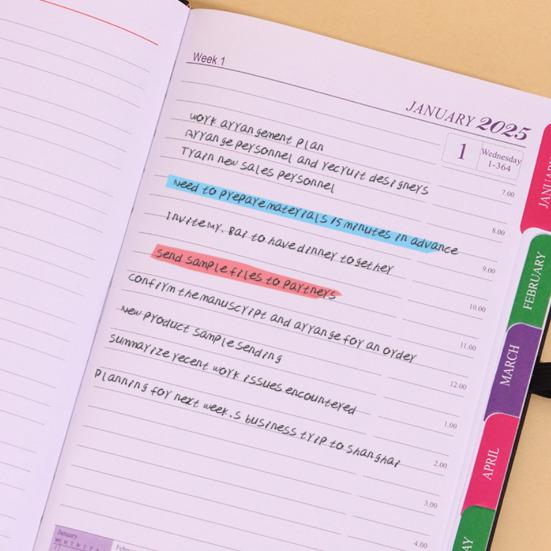 Week 1
JANUARY 2025
1
Wednesday
1-364
work arrangement plan
Arrange personnel and recruit designers
Train new sales personnel
7.00
Need to prepare materials 15 minutes in advance
8.00
Invite Mr. Bai to have dinner together
9.00
Send sample files to partners
10.00
confirm the manuscript and arrange for an order
11.00
new product sample sending
12.00
summarize recent work issues encountered
1.00
Planning for next week,s business trip to shanghai
2.00
3.00
4.00
JANUARY
FEBRUARY
MARCH
APRIL
AY
January